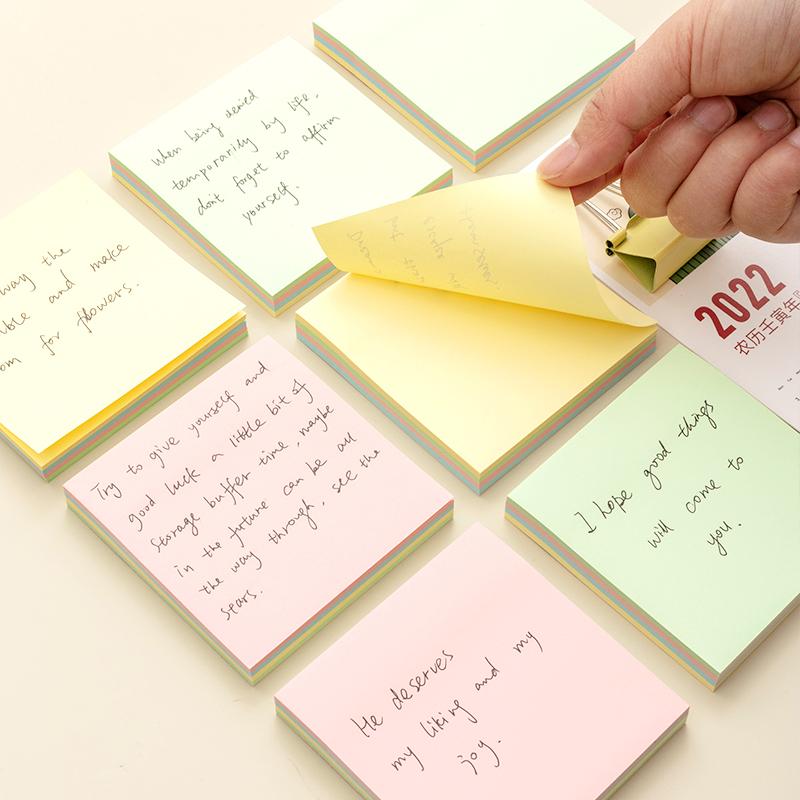 when being denied
temporarily by life.
dont forget to affirm
yourself.
way the
and make
for flowers.
Try to give yourself and
good luck a little bit of
storage buffer time, maybe
in the future can be all
the way through, see the
stars.
I hope good things
will come to
you.
He deserves
my liking and my
joy.
2022
农历壬寅年